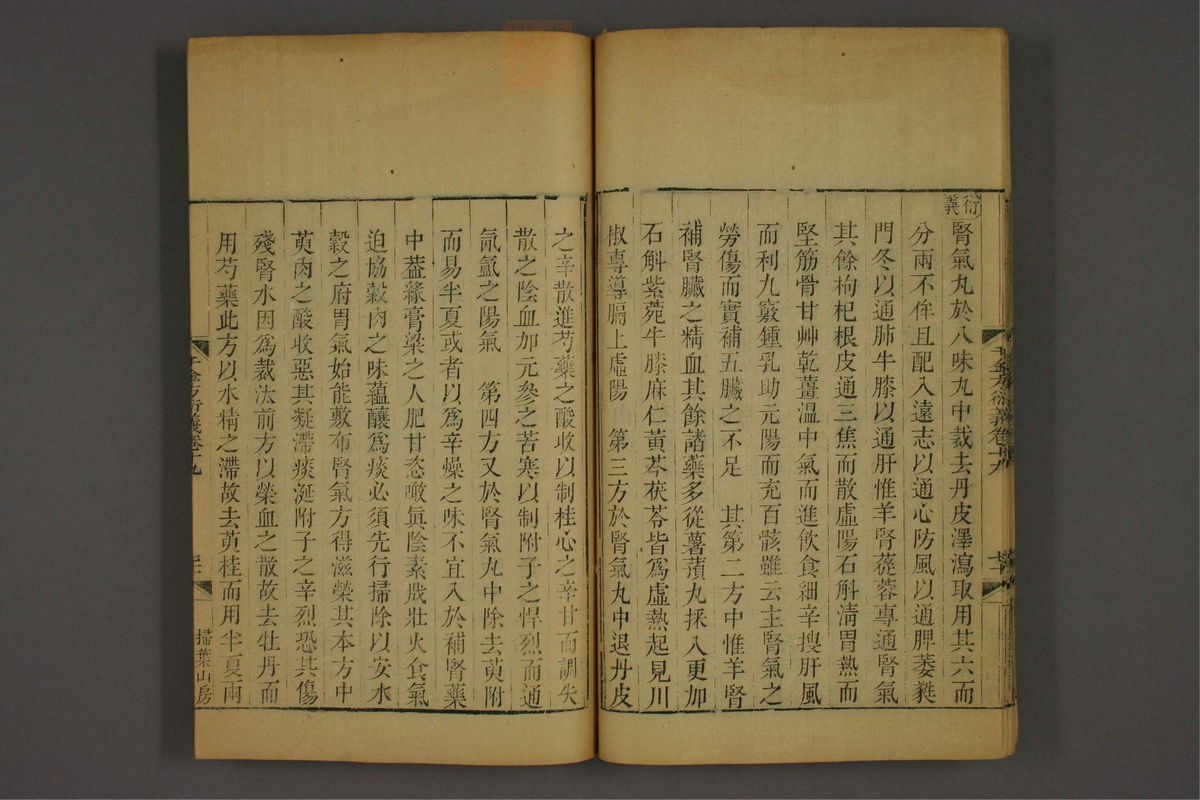 衍義
腎氣丸於八味丸中裁去丹皮澤瀉取用其六而
分兩不侔且配入遠志以通心防風以通脾萎蕤
門冬以通肺牛膝以通肝惟羊腎蓯蓉專通腎氣
其餘枸杞根皮通三焦而散虛陽石斛清胃熱而
堅筋骨甘艸乾薑溫中氣而進飲食細辛搜肝風
而利九竅鍾乳助元陽而充百骸雖云主腎氣之
勞傷而實補五臟之不足　其第二方中惟羊腎
補腎臟之精血其餘諸藥多從薯蕷丸採入更加
石斛紫菀牛膝麻仁黃芩茯苓皆為虛熱起見川
椒專導膈上虛陽　第三方於腎氣丸中退丹皮
千金方衍義卷十九
之辛散進芍藥之酸收以制桂心之辛甘而調失
散之陰血加元參之苦寒以制附子之悍烈而通
氤氳之陽氣　第四方又於腎氣丸中除去萸附
而易半夏或者以為辛燥之味不宜入於補腎藥
中葢緣膏粱之人肥甘恣噉眞陰素戕壯火食氣
迫協穀肉之味蘊釀為痰必須先行掃除以安水
穀之府胃氣始能敷布腎氣方得滋榮其本方中
萸肉之酸收惡其凝滯痰涎附子之辛烈恐其傷
殘腎水因為裁汰前方以榮血之散故去牡丹而
用芍藥此方以水精之滯故去黃桂而用半夏兩
千金方衍義卷十九
掃葉山房